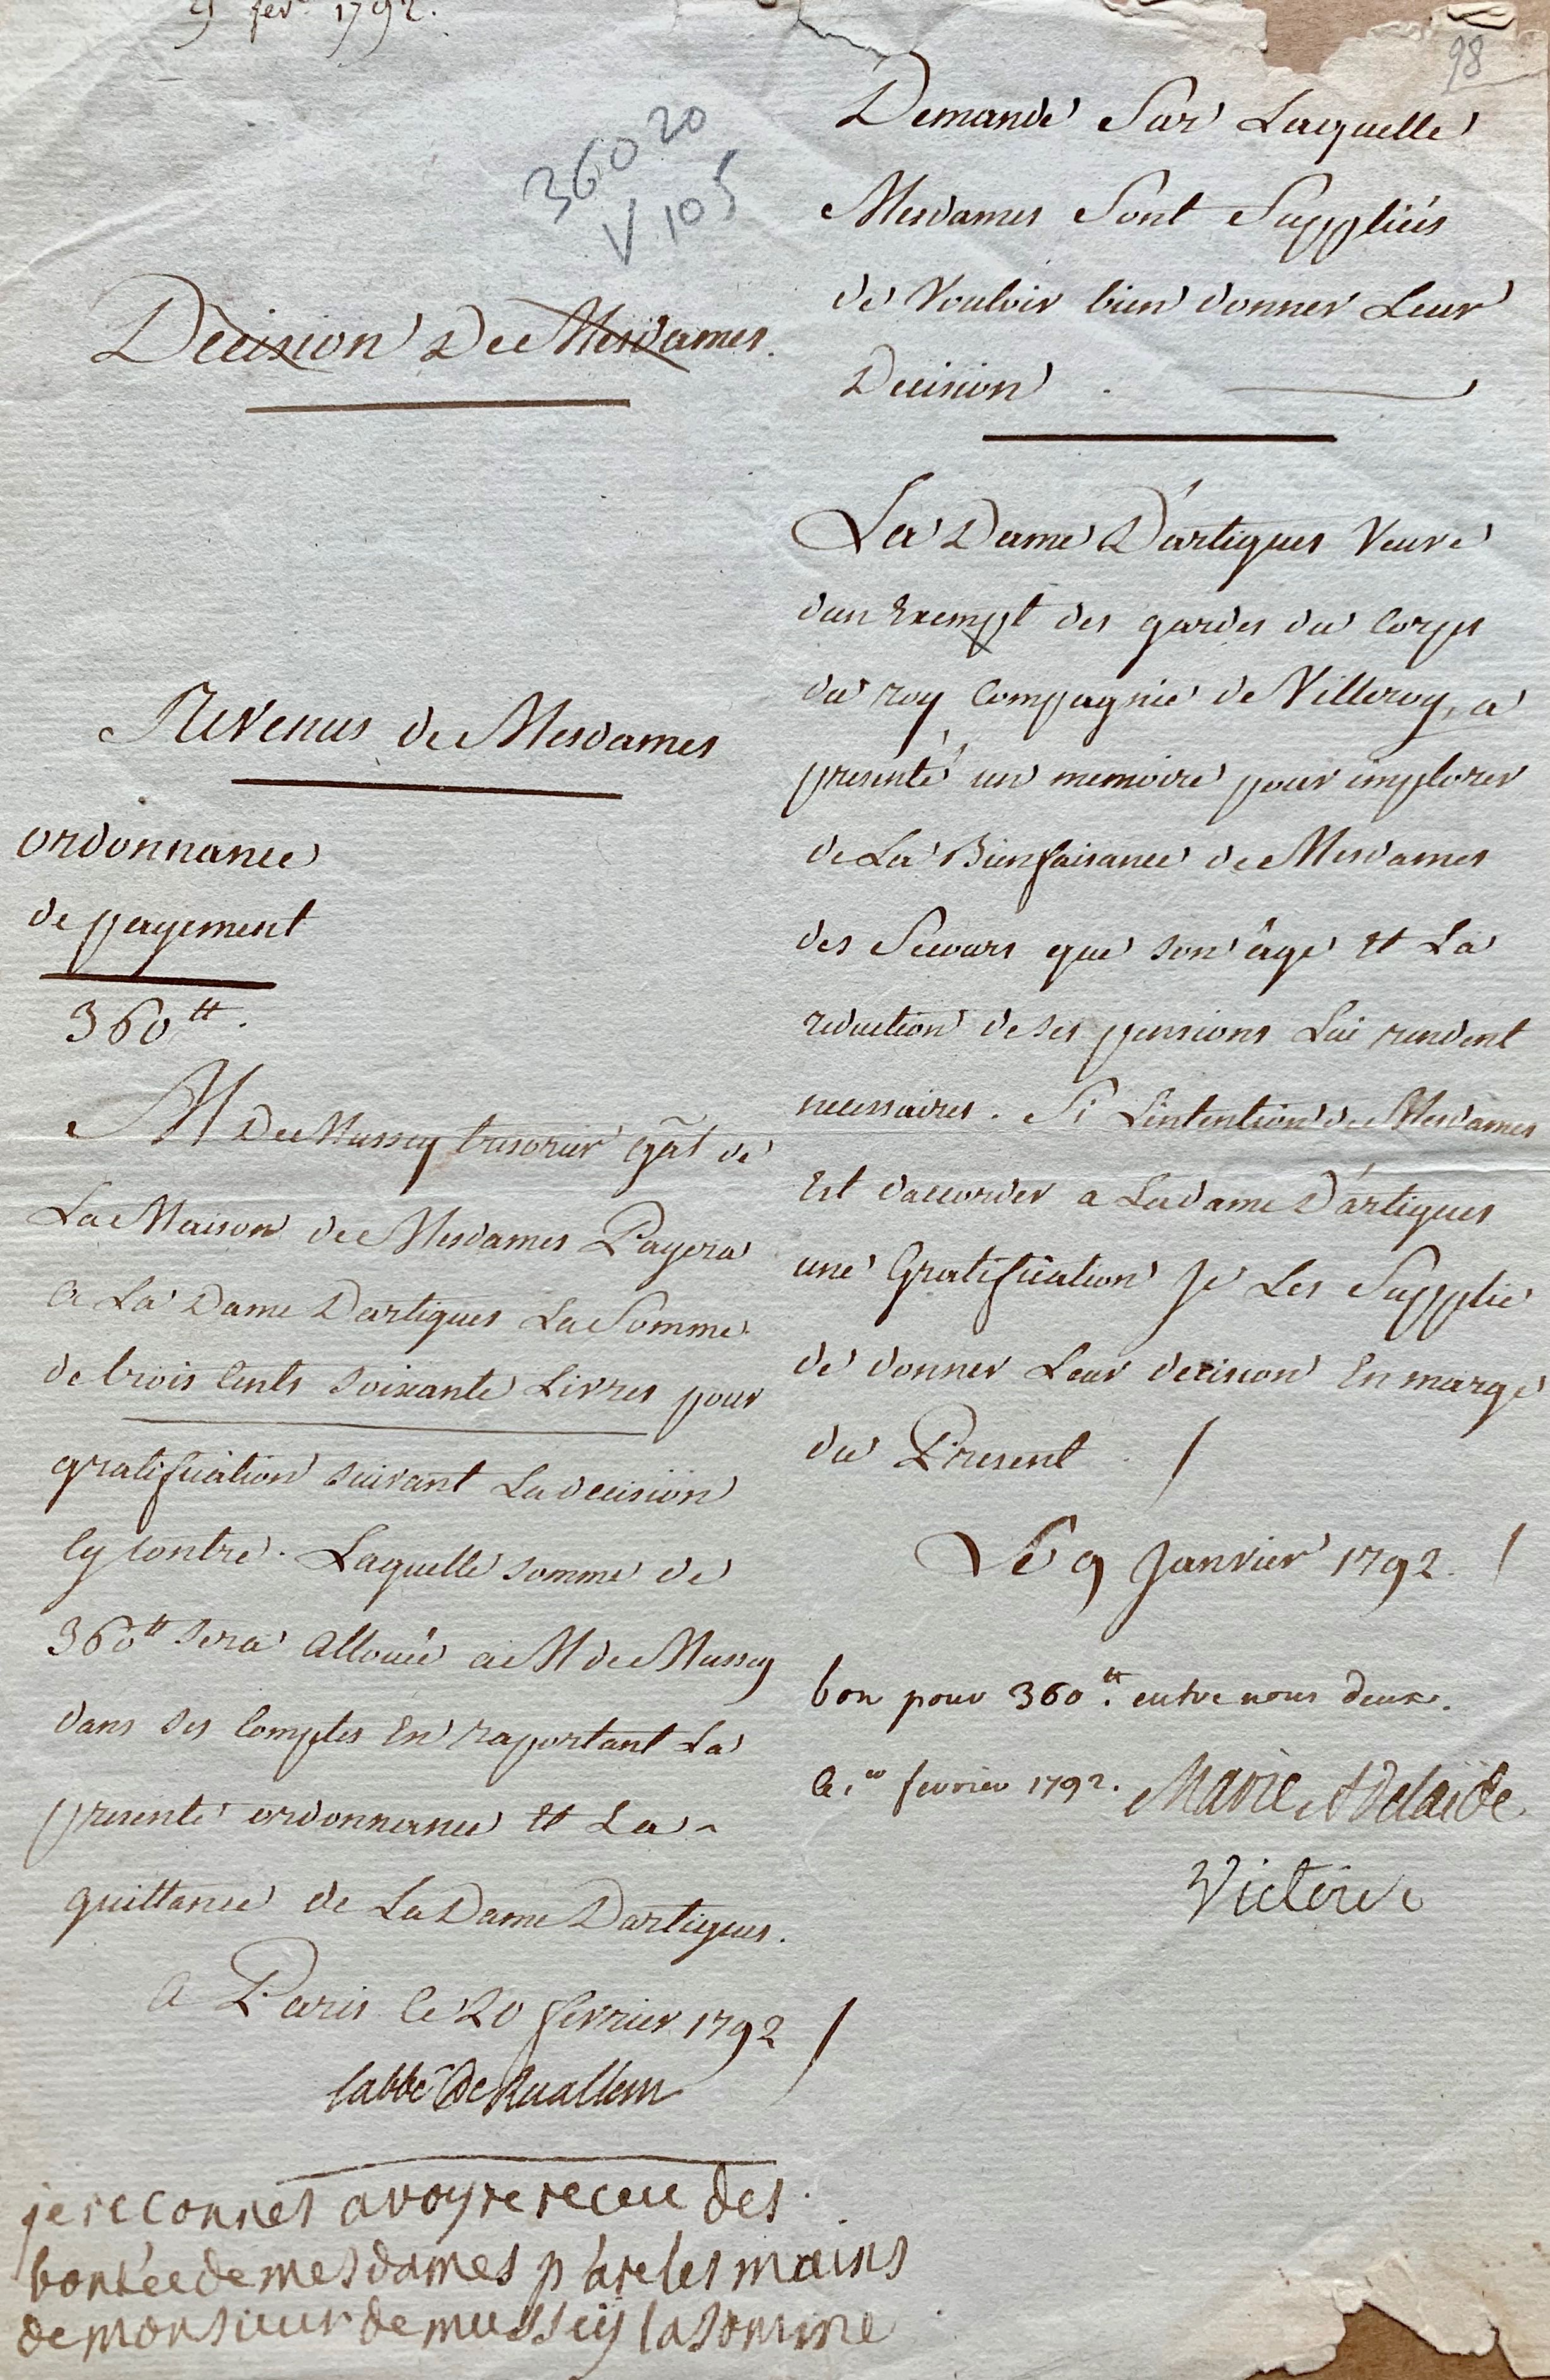 fevr 1792.
98
36020
V 105
Decision De Mesdames.
Revenus de Mesdames
ordonnance
de payement
360tt.
M De Mussey tresorier gãl de
La Maison de Mesdames Payera
a La Dame Dartigues La Somme
de trois Cents soixante Livres pour
gratification suivant La decision
Cy contre. Laquelle somme de
360tt sera allouée a M de Mussey
dans ses Comptes En raportant La
presente ordonnance et La
quittance de La Dame Dartigues.
a Paris le 20 fevrier 1792
labbé de Ruallem
je reconnes avoyre receue des
bontée de mes dames p are les mains
de monsieur de mussey la somme
Demande Sur Laquelle
Mesdames Sont Suppliées
de Vouloir bien donner Leur
Decision
La Dame D'artigues Veuve
dun Exempt des gardes du Corps
du roy Compagnie de Villeroy, a
presenté un memoire pour implorer
de La Bienfaisance de Mesdames
des Secours que son âge et La
reduction de ses pensions Lui rendent
necessaires. Si L'intention de Mesdames
Est daccorder a La dame D'artigues
une Gratification Je Les Supplie
de donner Leur decision En marge
du Present.
Le 9 Janvier 1792.
bon pour 360.tt entre nous deux.
ce 1er fevrier 1792. Marie Adelaide
Victoire